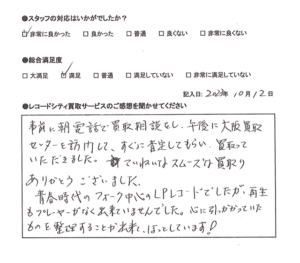 ●スタッフの対応はいかがでしたか?
☑非常に良かった □良かった □普通 □良くない □非常に良くない
●総合満足度
□大満足 ☑満足 □普通 □満足していない □非常に満足していない
記入日: 2023年 10月 12日
●レコードシティ買取サービスのご感想を聞かせてください
事前に朝電話で買取相談をし、午後に大阪買取
センターを訪問して、すぐに査定してもらい、買取って
いただきました。ていねいなスムーズな買取り
ありがとうございました。
青春時代のフォーク中心のLPレコードでしたが、再生
もプレーヤーがなく出来ていませんでした。心に引っかかっていた
ものを整理することが出来、ほっとしています!